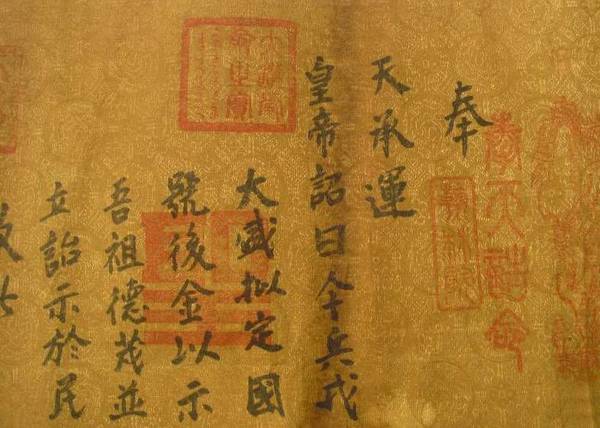 奉天誥命
奉
天承運
皇帝詔曰今兵戎
大盛拟定國
號後金以示
吾祖德茂並
立詔示於民